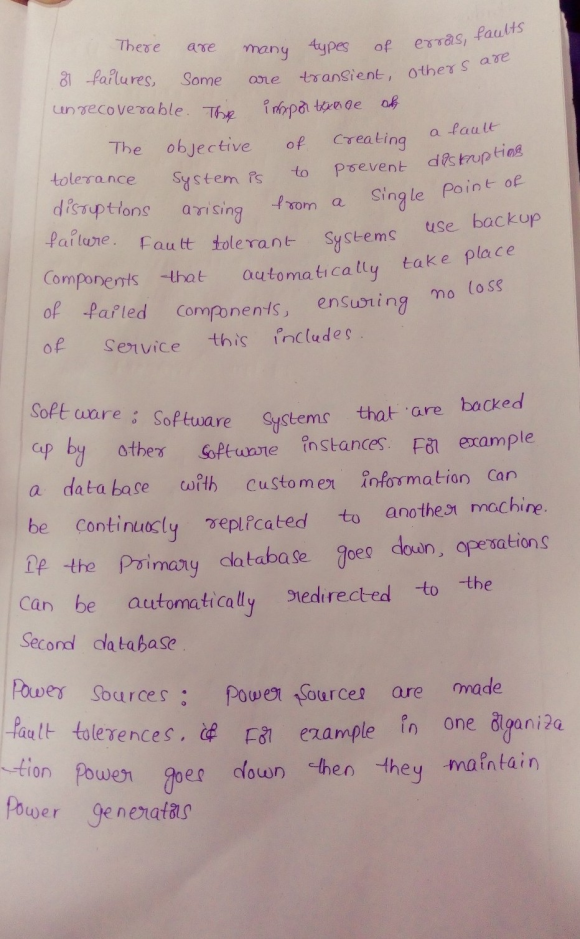 There are many types of errors, faults
or failures, Some are transient, others are
unrecoverable. The importance of
The objective of creating a fault
tolerance system is to prevent disrupting
disruptions arising from a single point of
failure. Fault tolerant systems use backup
Components that automatically take place
of failed components, ensuring no loss
of service this includes.
Software : Software systems that are backed
up by other software instances. For example
a database with customer information can
be continuosly replicated to another machine.
If the primary database goes down, operations
can be automatically redirected to the
Second database.
Power Sources : Power Sources are made
fault tolerences. if For example in one organiza
-tion power goes down then they maintain
Power generators